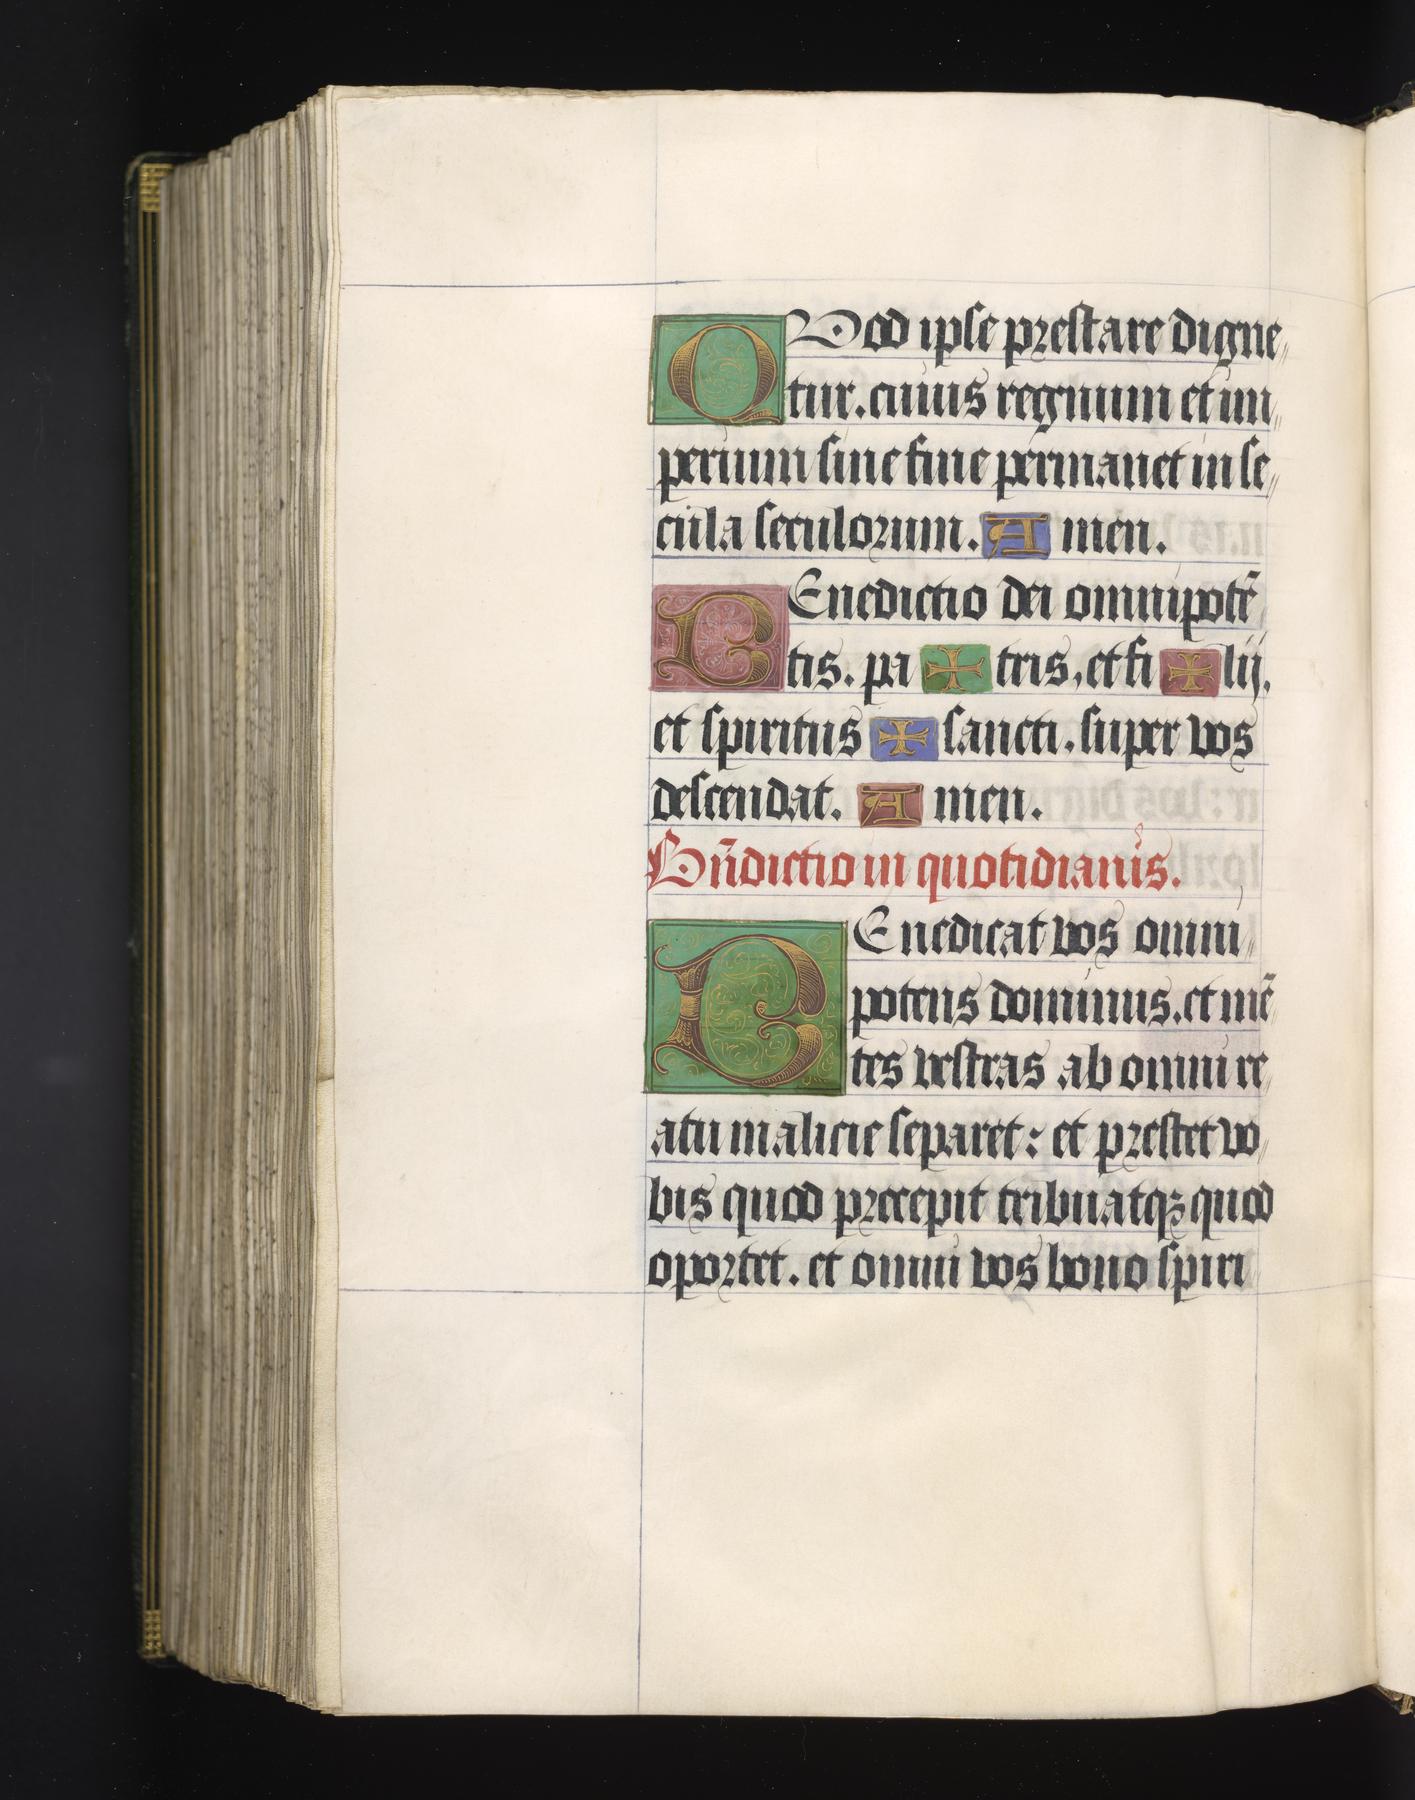 QVod ipse prestare digne„
tur. cuius regnum et im„
perium sine fine permanet in se„
cula seculorum. Amen.
BEnedictio dei omnipotē
tis. pa ✠ tris, et fi ✠ lij.
et spiritus ✠ sancti. super vos
descendat. Amen.
Bn̄dictio in quotidianis.
BEnedicat vos omni„
potens dominus. et mē
tes vestras ab omni re„
atu malicie separet: et prestet vo„
bis quod precepit tribuatqꝫ quod
oportet. et omni vos bono spiri